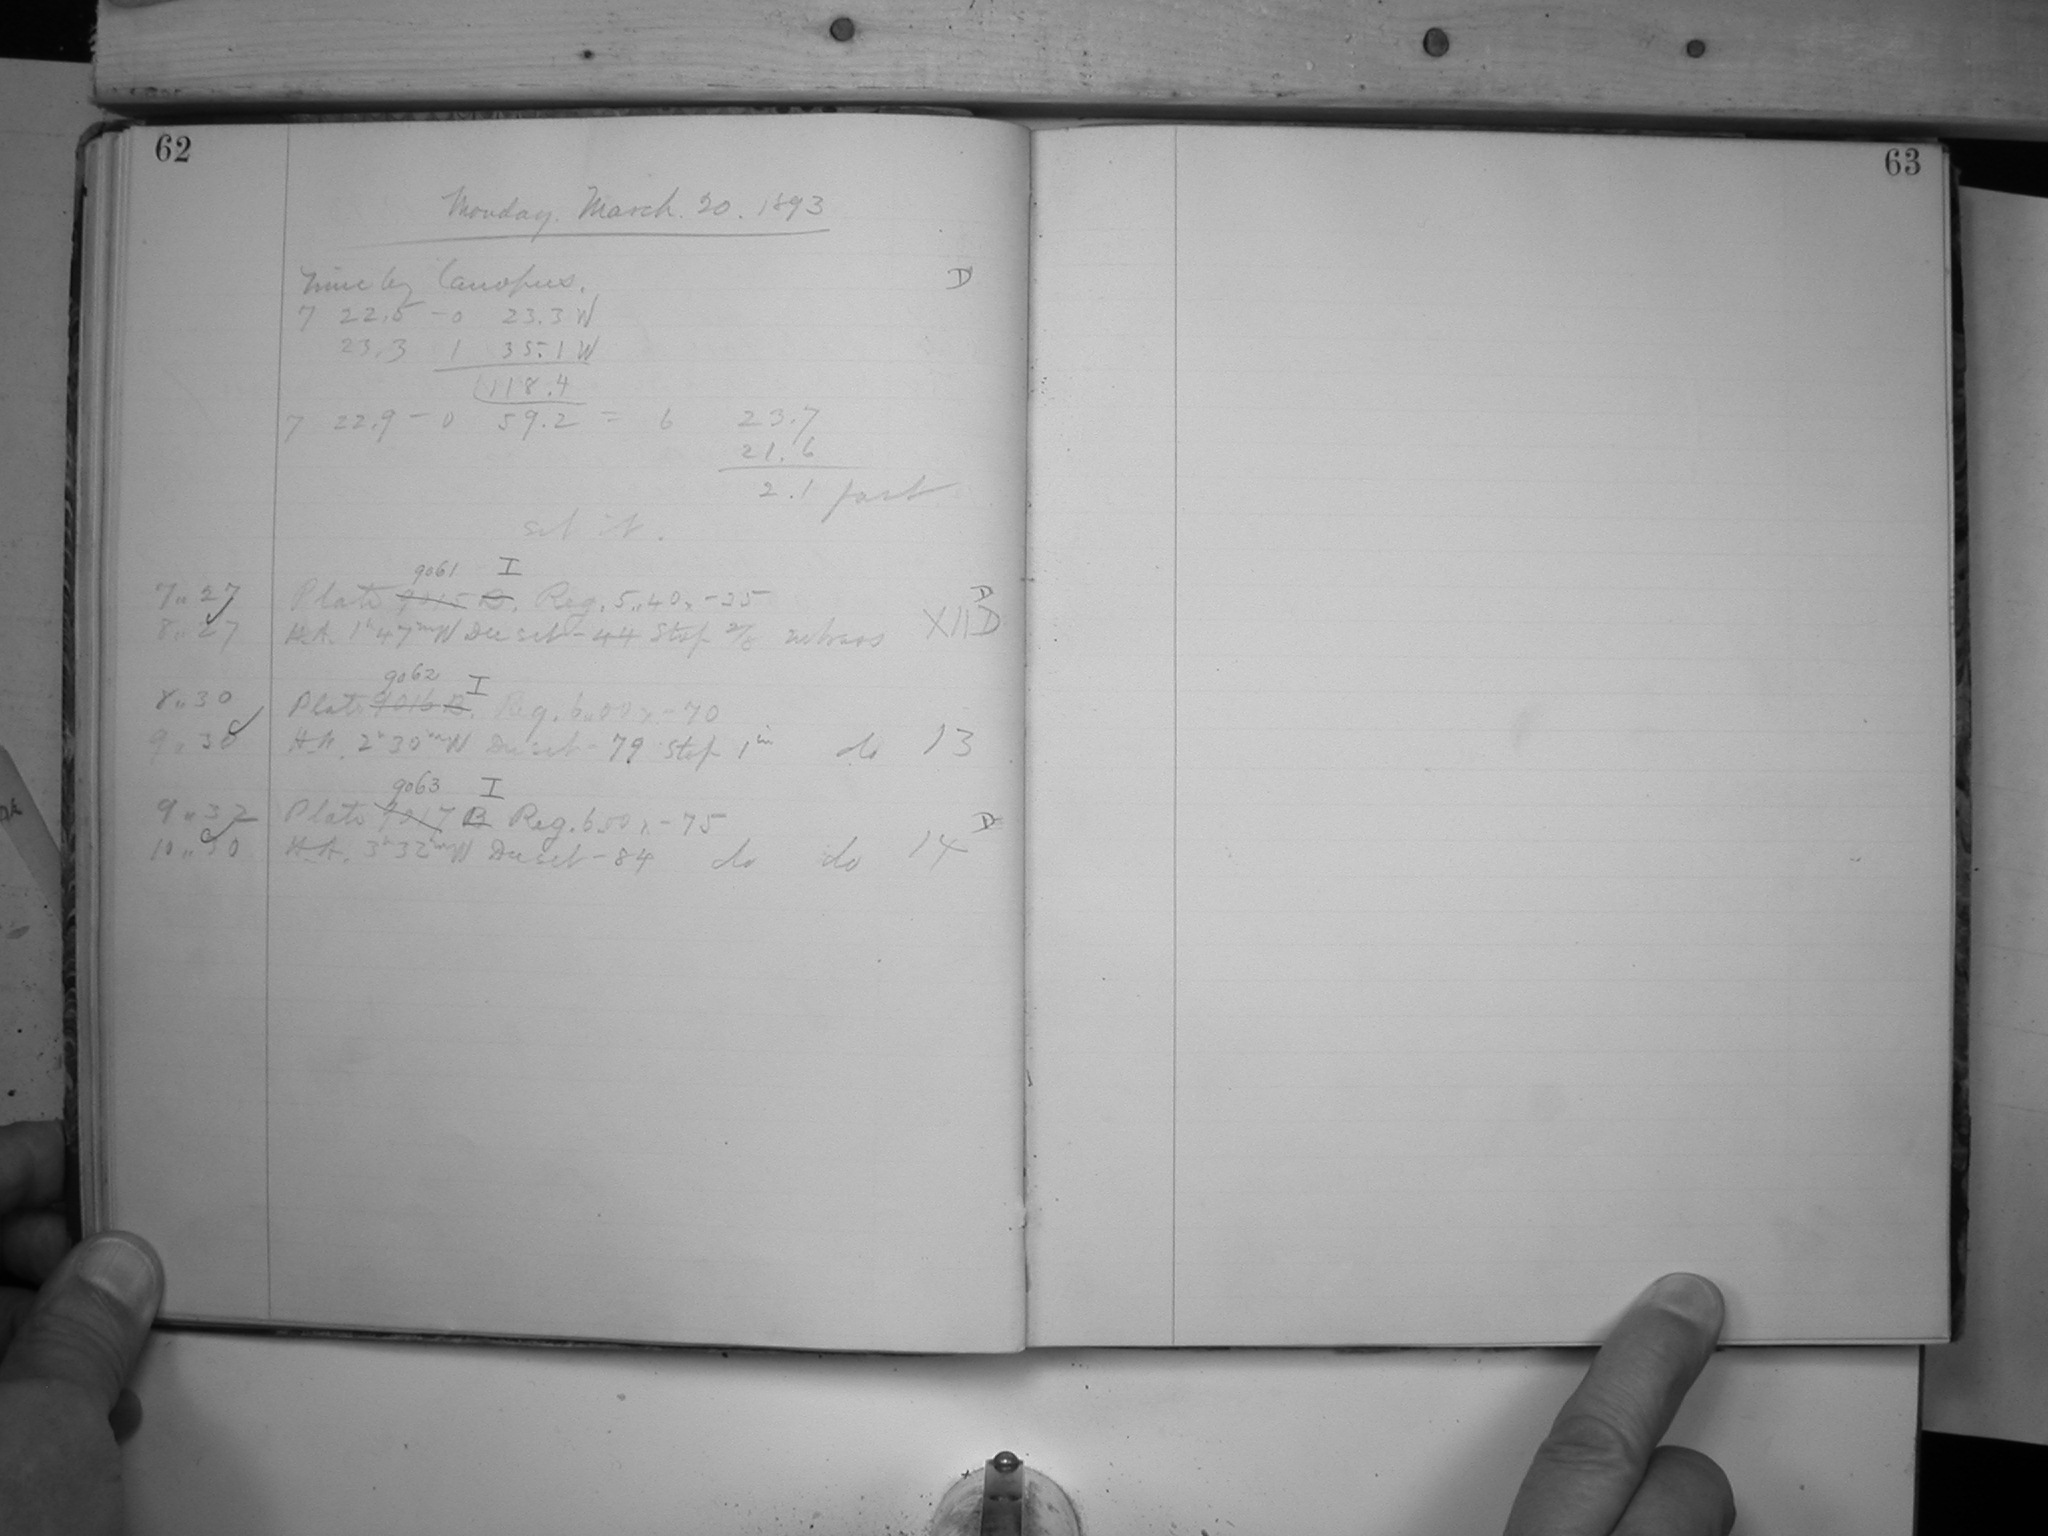 62
Monday. March. 20. 1893
Time by Canopus. D
7 22.5 - 0 23.3 W
23.3 1 35.1 W
118.4
7 22.9 - 0 59.2 = 6 23.7
21.6
2.1 fast
set it.
9061 I
7,, 27 Plate 9015 B. Reg. 5,,40 x -35 D
8,, 27 H.A. 1h 47m W Dec set - 44 Stop XII D
9062 I
8,, 30 Plate 9016 B. Reg. 6,,00 x -70
9,, 30 H.A. 2h 30m W Dec set - 79 Stop 1in do 13
9063 I
9,, 32 Plate 9017 B Reg. 6,,00 x -75 D
10,, 30 H.A. 3h 32m W Dec set - 84 do do 14
63